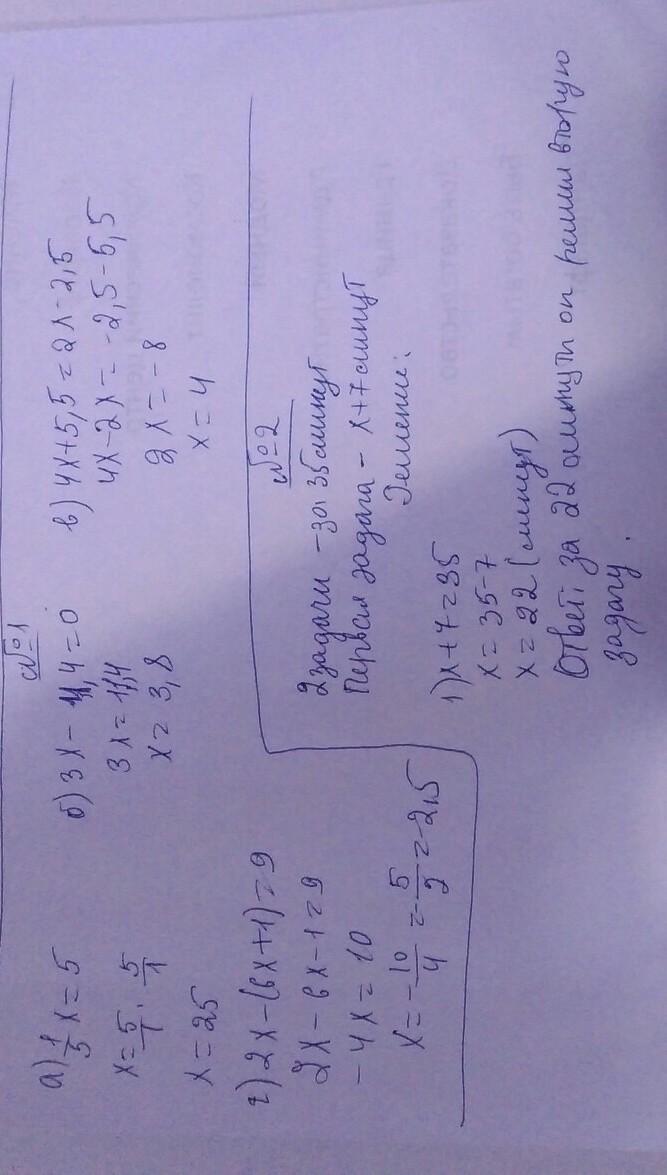 №1
а) 1/5 x = 5
x = 5/1 · 5/1
x = 25
б) 3x - 11,4 = 0
3x = 11,4
x = 3,8
в) 4x+5,5 = 2x-2,5
4x-2x = -2,5-5,5
2x = -8
x = 4
г) 2x-(6x+1) = 9
2x-6x-1 = 9
-4x = 10
x = -10/4 = -5/2 = -2,5
№2
2 задачи - за 35 минут
Первая задача - x+7 минут
Решение:
1) x+7=35
x = 35-7
x = 22 (минут)
Ответ: за 22 минуты он решил вторую
задачу.